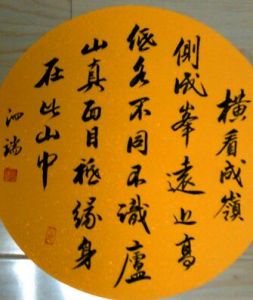 橫看成嶺
側成峯遠近高
低各不同不識廬
山真面目祗緣身
在此山中
泗瑞